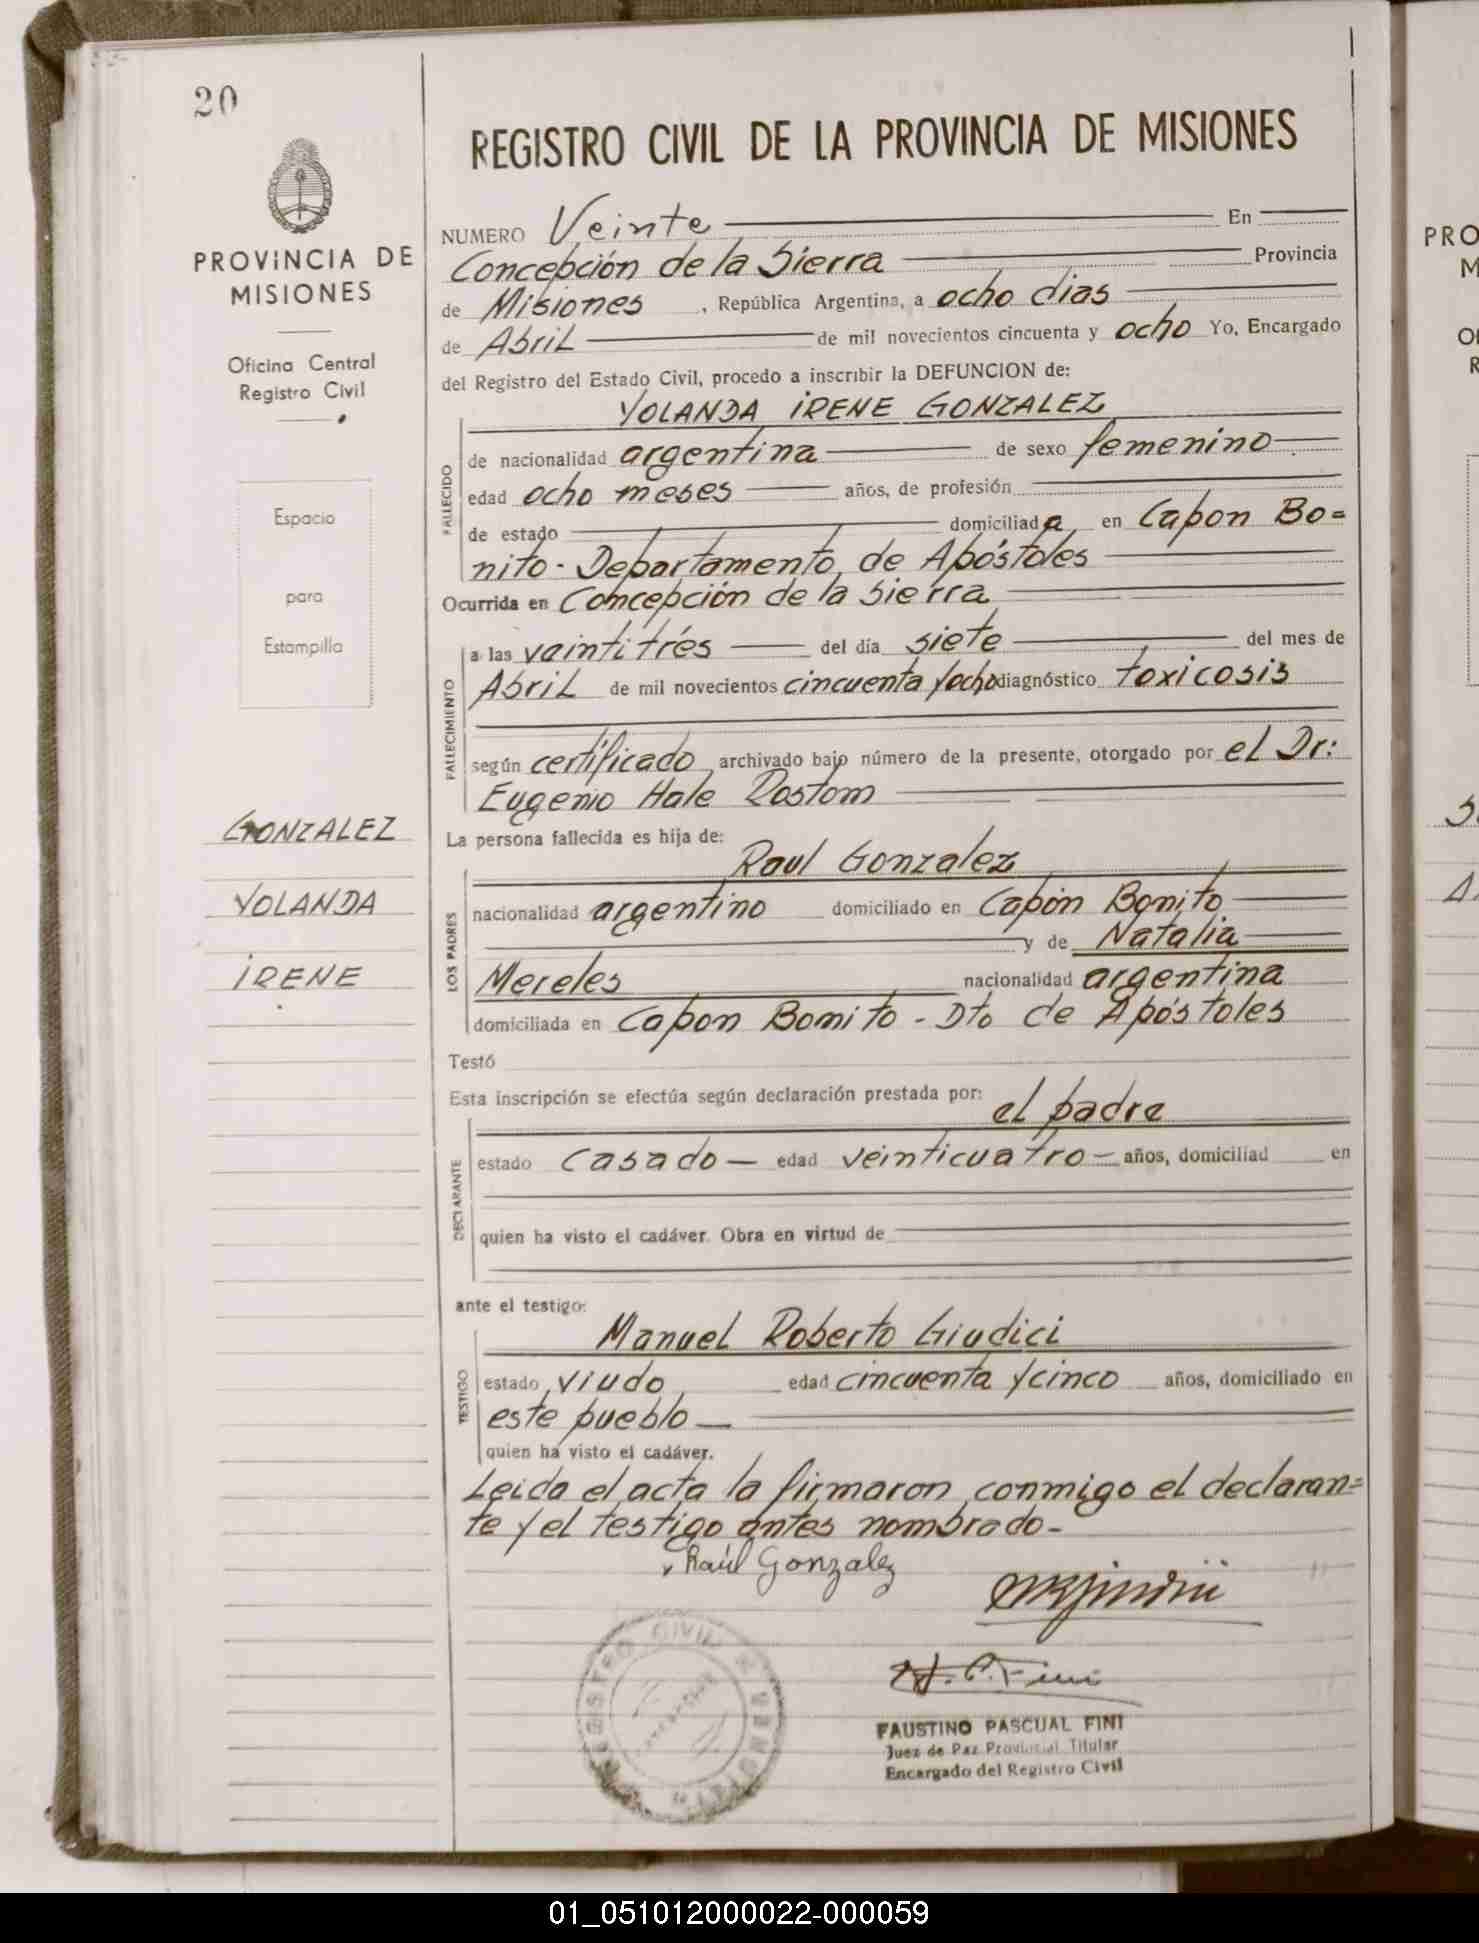 20
PROVINCIA DE
MISIONES
Oficina Central
Registro Civil
Espacio
para
Estampilla
GONZALEZ
YOLANDA
IRENE
REGISTRO CIVIL DE LA PROVINCIA DE MISIONES
NUMERO Veinte En
Concepción de la Sierra Provincia
de Misiones, República Argentina, a ocho dias
de Abril de mil novecientos cincuenta y ocho Yo, Encargado
del Registro del Estado Civil, procedo a inscribir la DEFUNCION de:
YOLANDA IRENE GONZALEZ
FALLECIDO
de nacionalidad argentina de sexo femenino
edad ocho meses años, de profesión
de estado domiciliada en Capon Bo=
nito - Departamento de Apóstoles
Ocurrida en Concepción de la Sierra
FALLECIMIENTO
a las vaintitrés del día siete del mes de
Abril de mil novecientos cincuenta y ocho diagnóstico toxicosis
según certificado archivado bajo número de la presente, otorgado por el Dr:
Eugenio Hale Rostom
La persona fallecida es hija de:
Raul Gonzalez
LOS PADRES
nacionalidad argentino domiciliado en Capón Bonito
y de Natalia
Mereles nacionalidad argentina
domiciliada en Capon Bonito - Dto de Apóstoles
Testó
Esta inscripción se efectúa según declaración prestada por: el padre
DECLARANTE
estado casado - edad veinticuatro - años, domiciliad en
quien ha visto el cadáver. Obra en virtud de
ante el testigo:
Manuel Roberto Giudici
TESTIGO
estado viudo edad cincuenta y cinco años, domiciliado en
este pueblo
quien ha visto el cadáver.
Leida el acta la firmaron conmigo el declaran=
te y el testigo antes nombrado-
Raúl Gonzalez
REGISTRO CIVIL
FAUSTINO PASCUAL FINI
Juez de Paz Provincial Titular
Encargado del Registro Civil
PRO
01_051012000022-000059